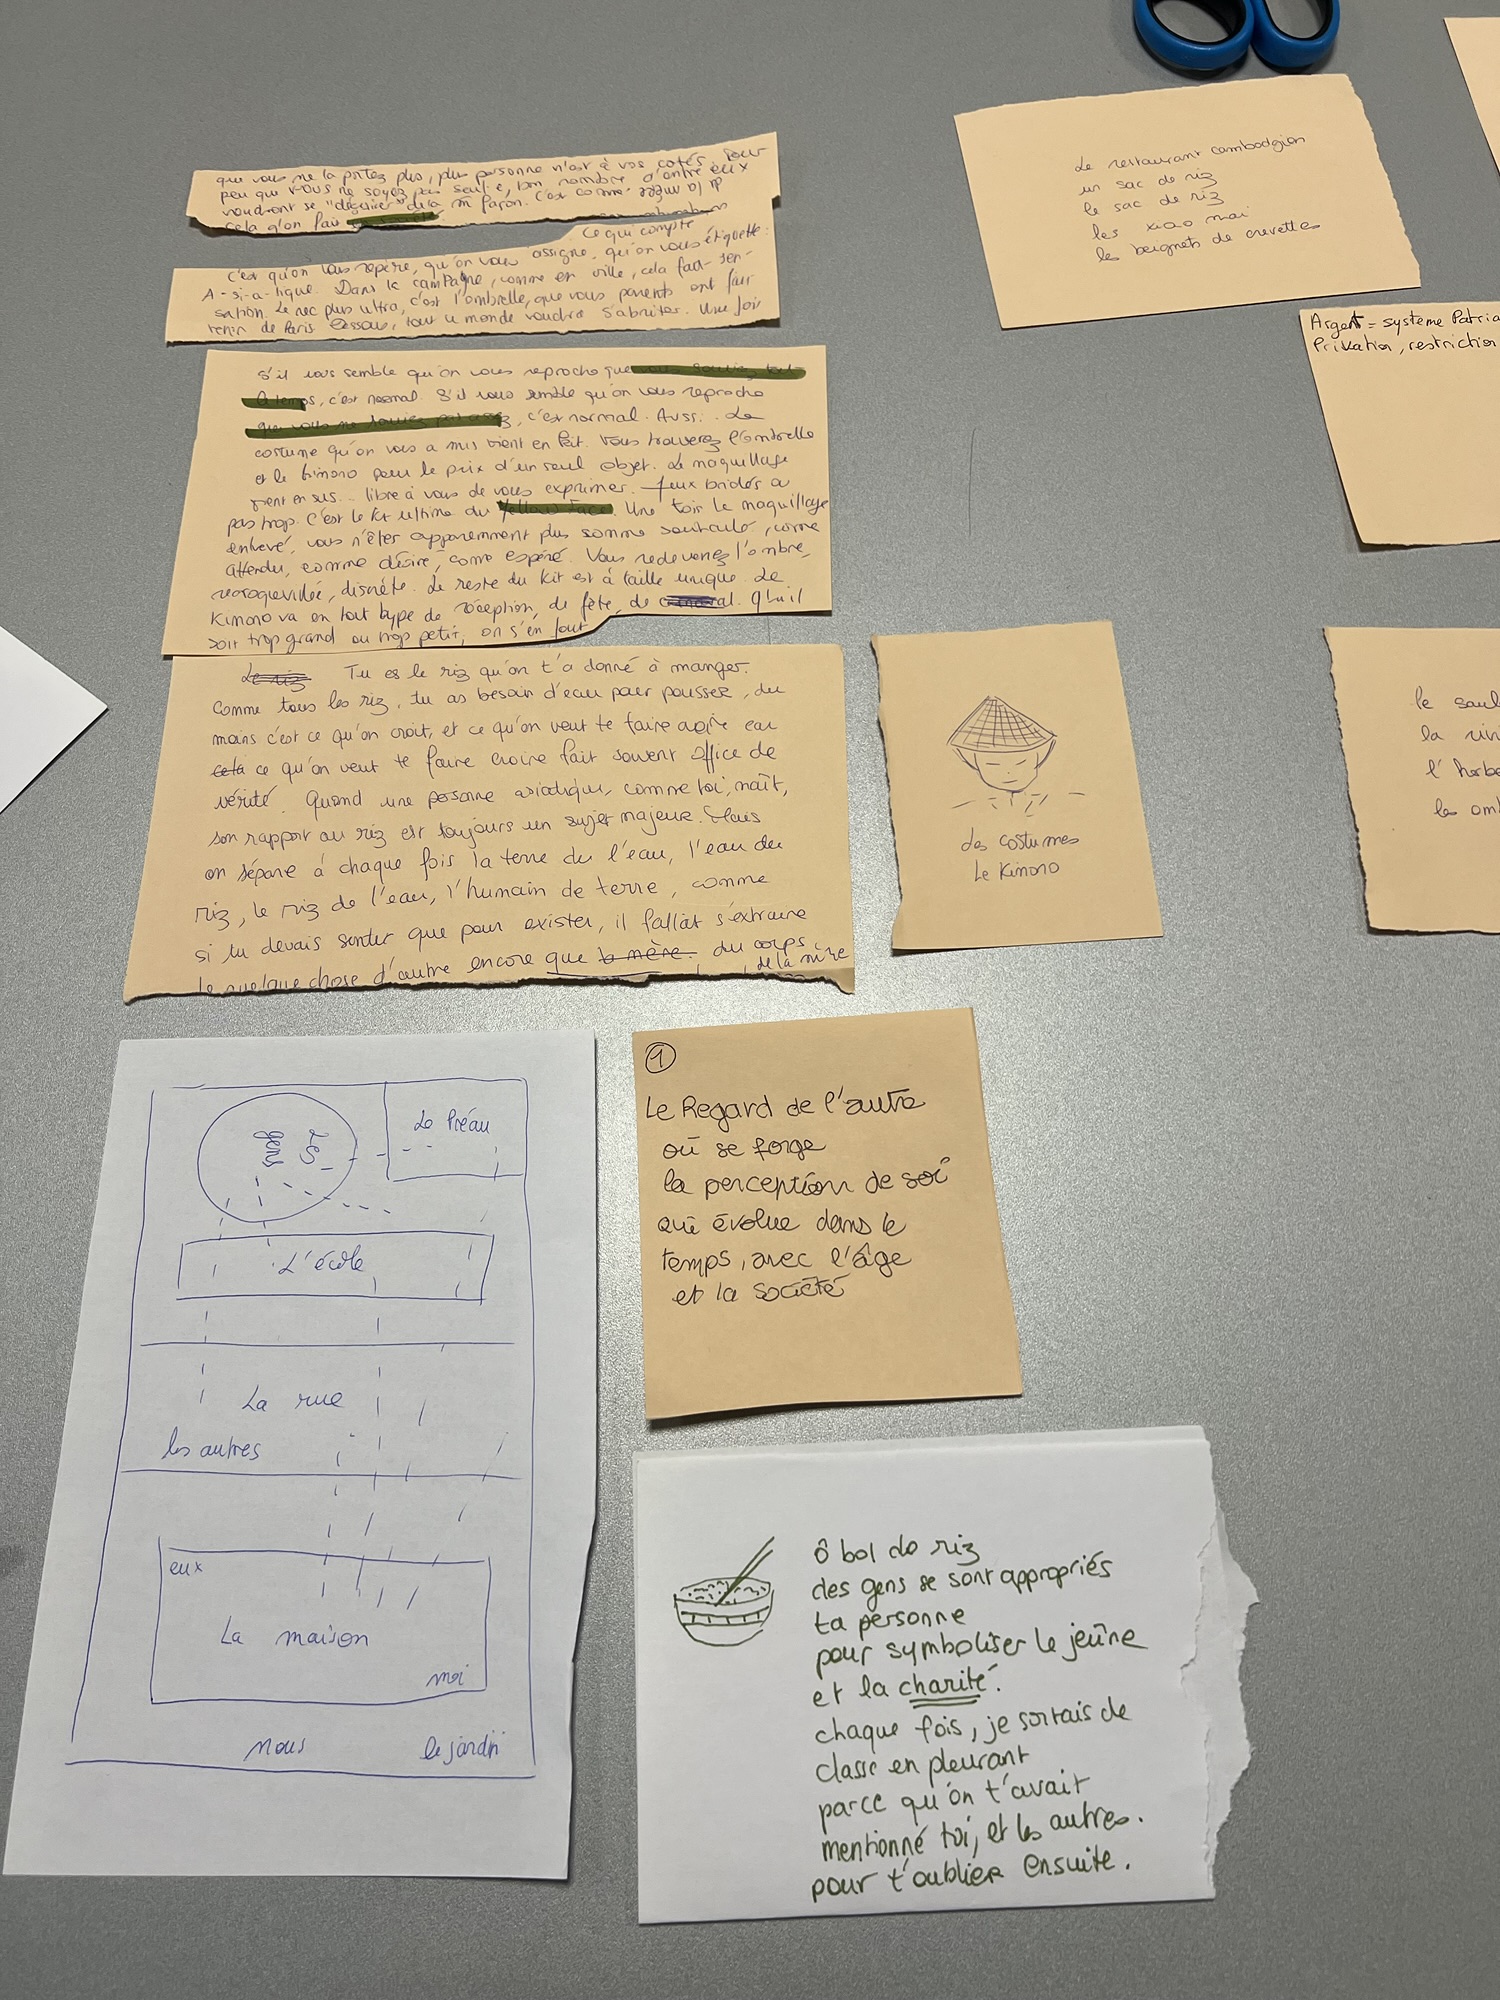 que vous ne la portez plus, plus personne n'est à vos cotés. Pour
peu que vous ne soyez pas seul·e, bon nombre d'entre eux
voudront se "déguiser" de la m façon. C'est comme
cela qu'on fait
Ce qui compte
c'est qu'on vous repère, qu'on vous assigne, qu'on vous étiquette.
A-si-a-tique. Dans la campagne, comme en ville, cela fait sen-
sation. Le nec plus ultra, c'est l'ombrelle, que vous parents ont fait
venir de Paris. Dessous, tout le monde voudra s'abriter. Une fois
S'il vous semble qu'on vous reproche que vous souriez tout
le temps, c'est normal. S'il vous semble qu'on vous reproche
que vous ne souriez pas assez, c'est normal. Aussi. Le
costume qu'on vous a mis vient en kit. Vous trouverez l'ombrelle
et le kimono pour le prix d'un seul objet. Le maquillage
vient en sus... libre à vous de vous exprimer. Yeux bridés ou
pas trop. C'est le kit ultime du Yellow Face. Une fois le maquillage
enlevé, vous n'êtes apparemment plus comme souhaité, comme
attendu, comme désiré, comme espéré. Vous redevenez l'ombre,
recroquevillée, discrète. Le reste du kit est à taille unique. Le
Kimono va en tout type de réception, de fête, de carnaval. Qu'il
soit trop grand ou trop petit, on s'en fout
Le riz Tu es le riz qu'on t'a donné à manger.
Comme tous les riz, tu as besoin d'eau pour pousser, du
moins c'est ce qu'on croit, et ce qu'on veut te faire croire car
cela ce qu'on veut te faire croire fait souvent office de
vérité. Quand une personne asiatique, comme toi, naît,
son rapport au riz est toujours un sujet majeur. Mais
on sépare à chaque fois la terre de l'eau, l'eau du
riz, le riz de l'eau, l'humain de terre, comme
si tu devais sentir que pour exister, il fallait s'extraire
de quelque chose d'autre encore que la mère. du corps
de la mère
Le restaurant cambodgien
un sac de riz
le sac de riz
les xiao mai
les beignets de crevettes
Argent = système Patria
Privation, restriction
Les costumes
Le Kimono
le saul
la riv
l'herbe
les om
Les
gens
Le Préau
L'école
La rue
les autres
eux
La maison
moi
nous
le jardin
1
Le Regard de l'autre
où se forge
la perception de soi
qui évolue dans le
temps, avec l'âge
et la société
Ô bol de riz
des gens se sont appropriés
ta personne
pour symboliser le jeûne
et la charité.
chaque fois, je sortais de
classe en pleurant
parce qu'on t'avait
mentionné toi, et les autres.
pour t'oublier ensuite.